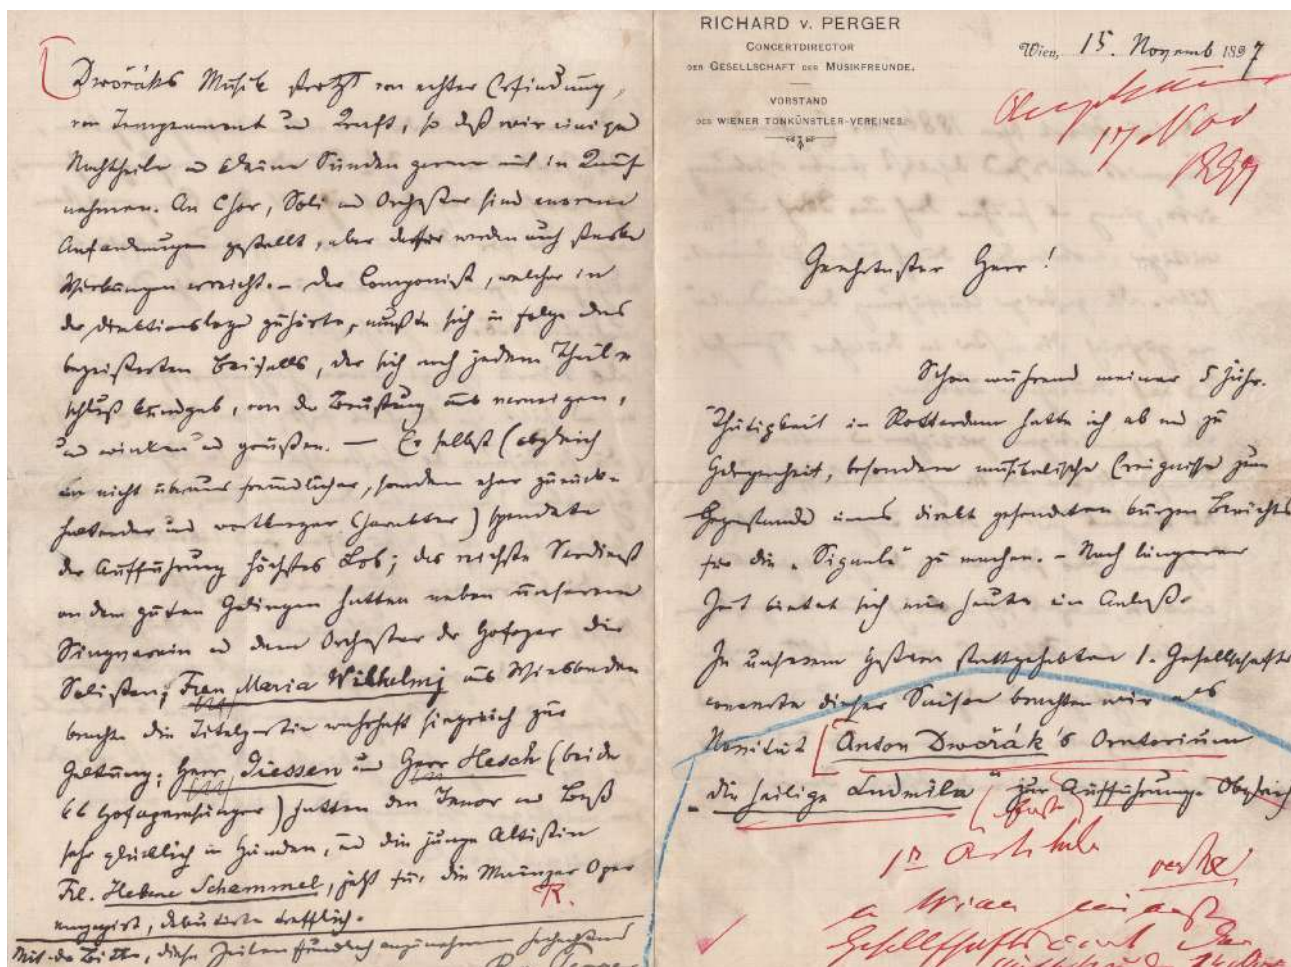 Dwořáks Musik strotzt von echter Erfindung,
von Temperament und Kraft, so daß wir einige
Nachtheile und kleine Sünden gerne mit in Kauf
nehmen. An Chor, Soli und Orchester sind enorme
Anforderungen gestellt, aber dafür werden auch starke
Wirkungen erreicht. – Der Componist, welcher in
der Direktionsloge zuhörte, mußte sich in Folge des
begeisterten Beifalls, der sich nach jedem Theil-
schluß kundgab, von der Brüstung aus verneigen,
und winken und grüßen. — Er selbst (obgleich
ein nicht überaus freundlicher, sondern eher zurück-
haltender und wortkarger Charakter) spendete
der Aufführung höchstes Lob; das reichste Verdienst
an dem guten Gelingen hatten neben unserem
Singverein und dem Orchester der Hofoper die
Solisten; Frau Maria Wilhelmj aus Wiesbaden
brachte die Titelpartie wahrhaft siegreich zur
Geltung; Herr Diessen und Herr Hesch (beide
kk Hofopernsänger) hatten den Tenor und Baß
sehr glücklich in Händen, und die junge Altistin
Frl. Helene Schemmel, jetzt für die Mainzer Oper
engagirt, debutirte trefflich.
R.
Mit der Bitte, diese Zeilen freundlich anzunehmen hochachtend
RICHARD v. PERGER
CONCERTDIRECTOR
DER GESELLSCHAFT DER MUSIKFREUNDE.
VORSTAND
DES WIENER TONKÜNSTLER-VEREINES.
Wien, 15. Novemb 1897
17 Nov
1897
Geehrtester Herr!
Schon während meiner 5 jähr.
Thätigkeit in Rotterdam hatte ich ab und zu
Gelegenheit, besondere musikalische Ereignisse zum
Gegenstande eines direkt gesandten kurzen Berichts
für die „Signale" zu machen. – Nach längerer
Zeit bietet sich mir heute ein Anlaß.
In unserem gestern stattgehabten 1. Gesellschafts
concerte dieser Saison brachten wir als
Novität Anton Dwořák's Oratorium
„die heilige Ludmila" zur Aufführung. Obgleich
1n Artikel
in Wien
Gesellschafts der